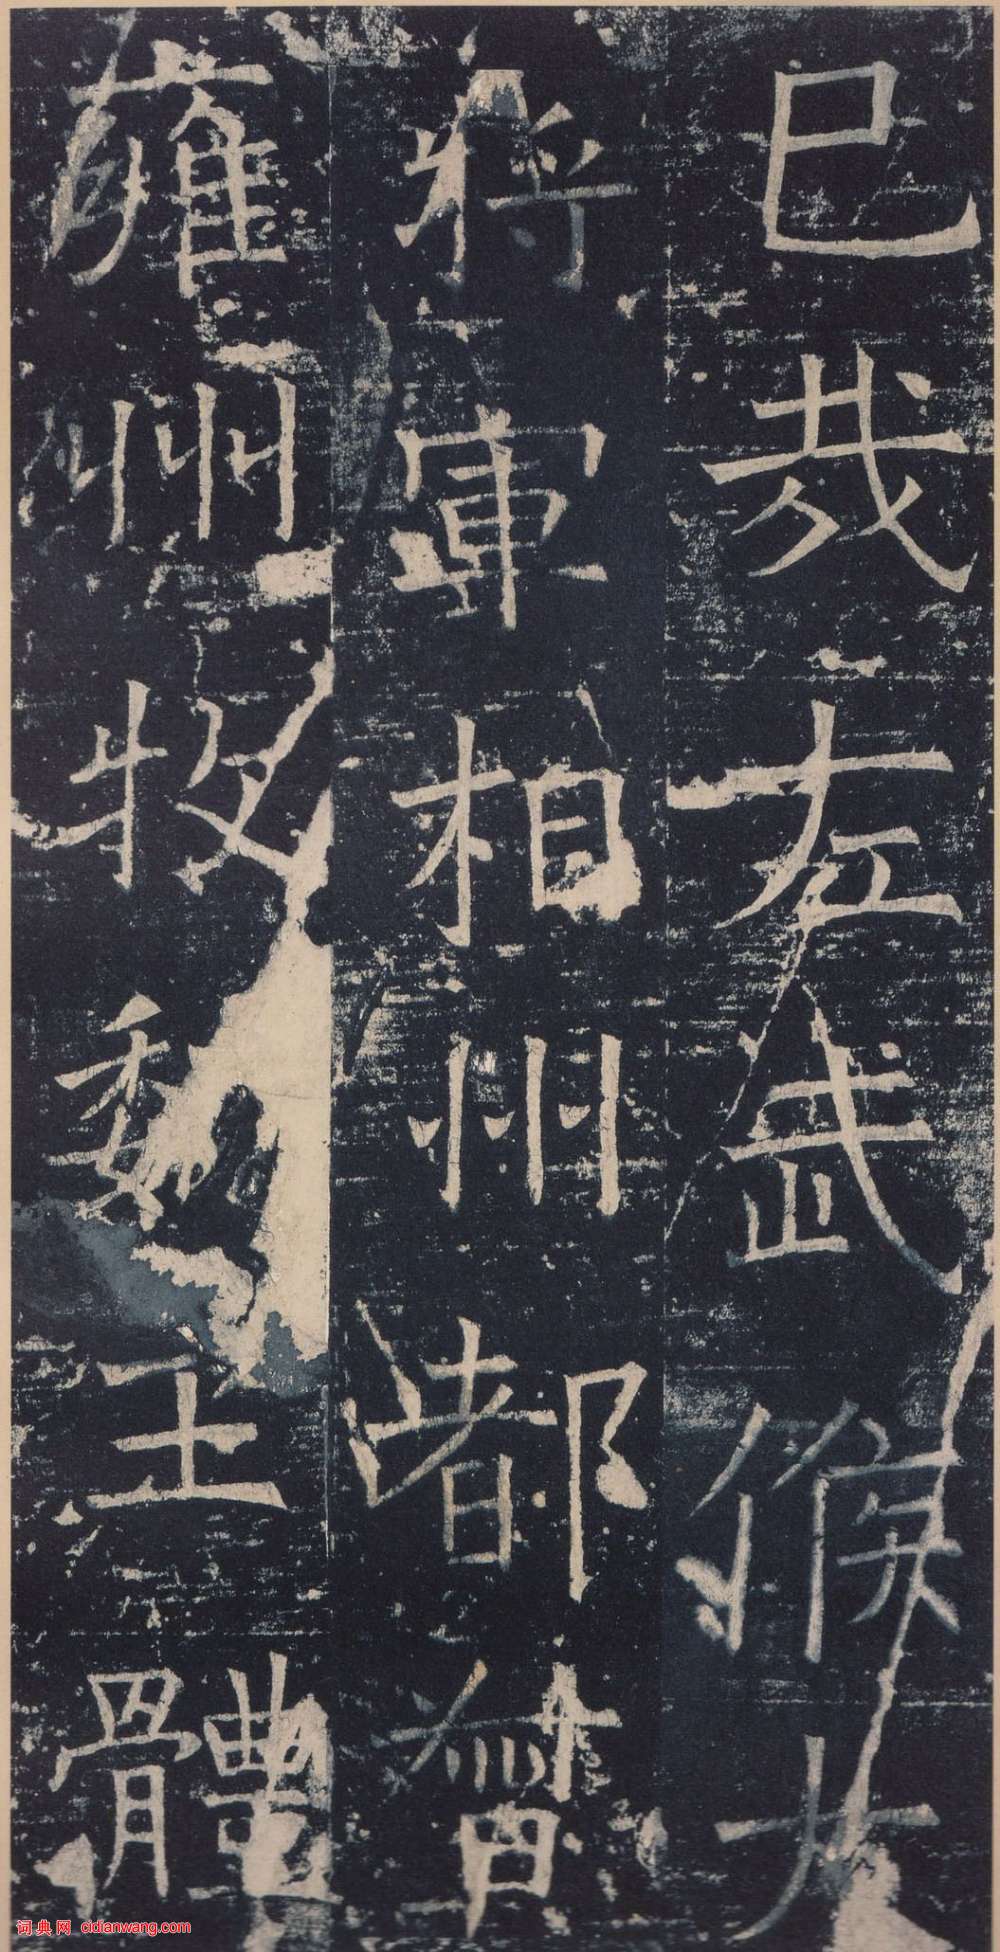 已哉左武候大
將軍相州都督
雍州牧魏王體
词典网 cidianwang.com